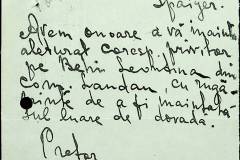 Avem onoare a vă înainta
alăturat coresp. privitor
pe Beĭin Leontina din
com. Landau, cu rugă
minte de a fi înaintată
luare de dovadă.
Pretor